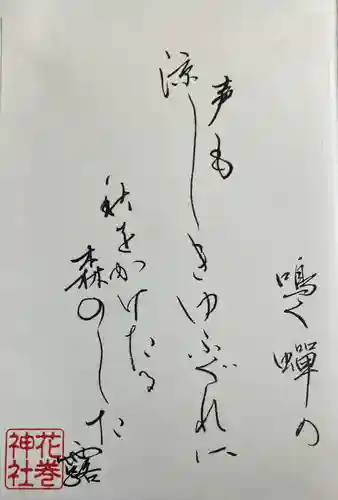 鳴く蟬の
声も
涼しきゆふぐれに
秋をかけたる
森のした
露
花巻
神社